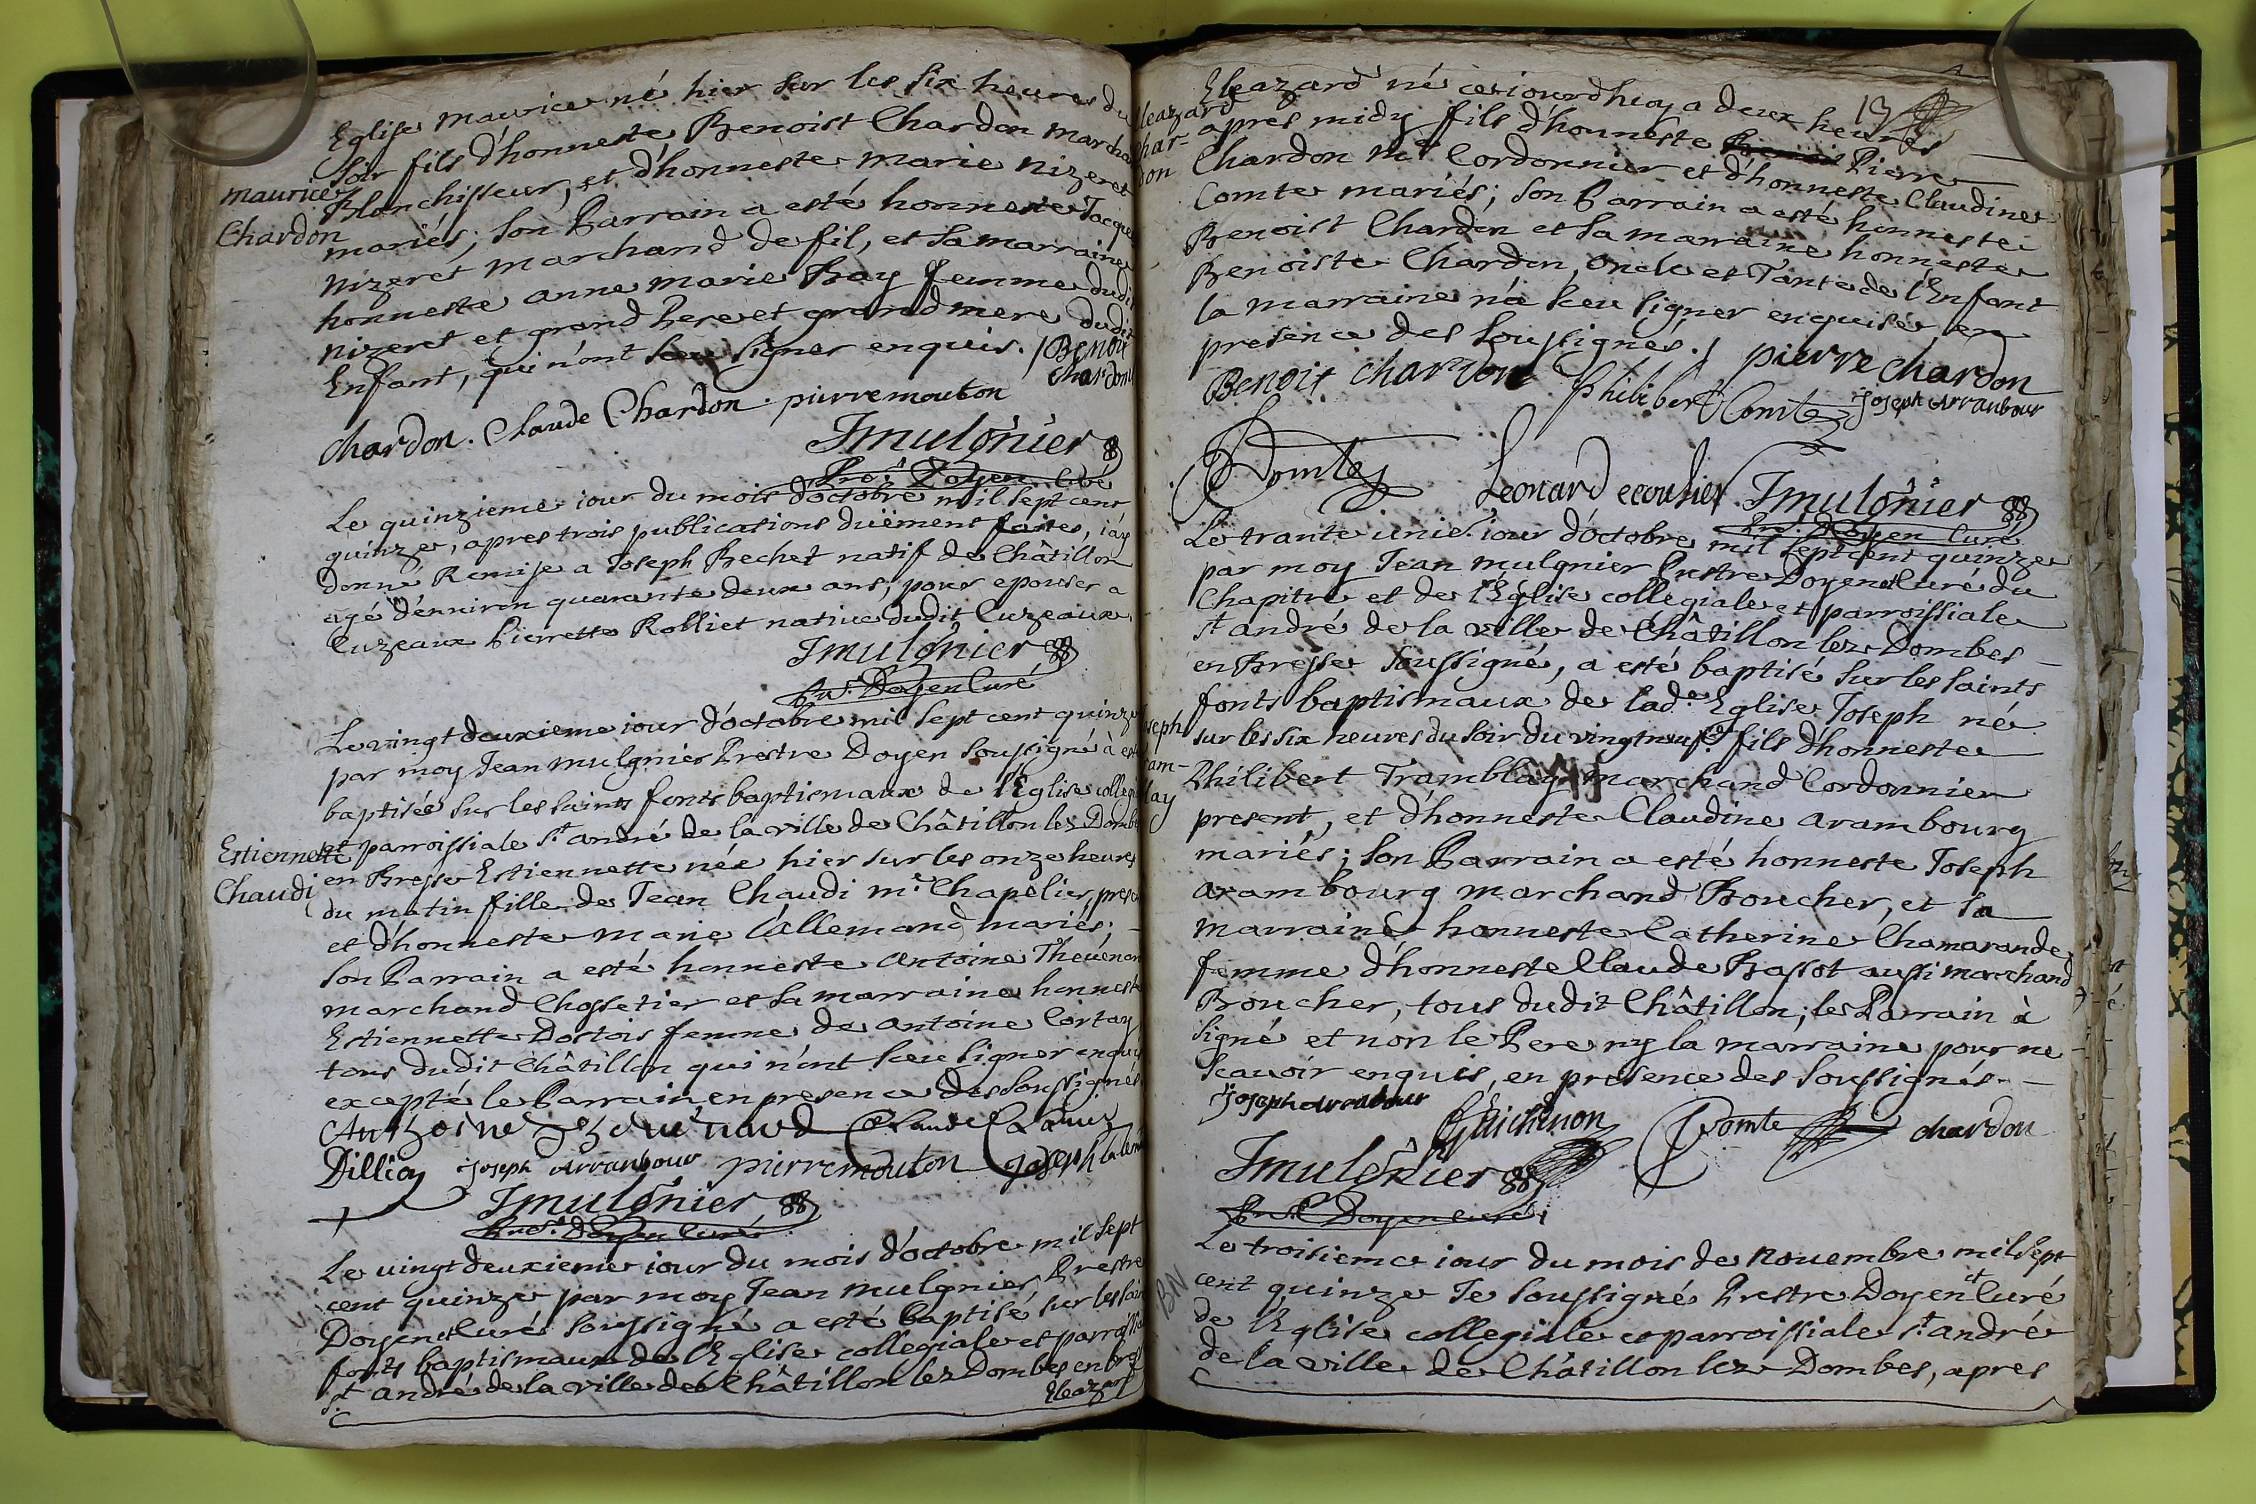 Eglise Maurice né hier sur les six heures du
soir fils d'honneste Benoist Chardon marchand
Blanchisseur, et d'honneste marie nizeret
maurice
Chardon
mariés; son Parrain a esté honneste Jacques
nizeret marchand de fil, et sa marraine
honneste anne marie Bay femme dudit
nizeret et grand Pere et grand mere dudit
Enfant, qui n'ont sceu signer enquis. / Benoit
chardon
chardon. Claude Chardon. pierre mouton
Jmulônier
Pre. Doyen Curé
Le quinzieme iour du mois d'octobre mil sept cent
quinze, apres trois publications duëment faites, i'ay
donné Remise a Joseph Bechet natif de Châtillon
agé d'enuiron quarante deux ans, pour epouser a
Cuzeaux Pierrette Rolliet natiue dudit Cuzeaux.
Jmulônier
Pre. Doyen Curé
Le vingt deuxieme iour d'octobre mil sept cent quinze
par moy Jean mulgnier Prestre Doyen soussigné à esté
baptisée sur les saints fonts baptismaux de l'Eglise collegi
et parroissiale St andré de la ville de Châtillon lez Dombe
Estiennette
Chaudi
en Bresse Estiennette née hier sur les onze heures
du matin fille de Jean Chaudi me. Chapelier, prese
et d'honneste marie Lallemand mariés; -
son Parrain a esté honneste antoine Theuenon
marchand Chossetier et sa marraine honneste
Estiennette Dostois femme de antoine Cortay
tous dudit Châtillon qui n'ont sceu signer enquis
excepté le Parrain en presence des soussignés
Anthoine Claude
Dillion joseph Arranbour pierre mouton joseph
Jmulônier
Pre. Doyen Curé
Le uingt deuxieme iour du mois d'octobre mil sept
cent quinze par moy Jean mulgnier Prestre
Doyen et Curé soussigné a esté baptisé sur les sai
fonts baptismaux de l'Eglise collegiale et parroissia
St. andré de la ville de Châtillon lez Dombes en bre
Eleazard
13
Eleazard né ce iourd'huy a deux heures
leazard
har-
don
apres midy fils d'honneste Pierre
Chardon me. Cordonnier et d'honneste Claudine
Comte mariés; son Parrain a esté honneste
Benoist Chardon et sa marraine honneste
Benoiste Chardon, oncle et Tante de l'Enfant
la marraine n'a sceu signer enquise, en
presence des soussignés. / pierre chardon
Benoit chardon Philibert Comte joseph Arranbour
Comte Leonard ecouhier Jmulônier
Pre. Doyen Curé
Le trante unie. iour d'octobre mil sept cent quinze
par moy Jean mulgnier Prestre Doyen et Curé du
Chapitre et de l'Eglise collegiale et parroissiale
St andré de la ville de Châtillon lez Dombes -
en Bresse soussigné, a esté baptisé sur les saints
fonts baptismaux de lade. Eglise Joseph né
oseph
ram-
lay
sur les six heures du soir du vingtneufe. fils d'honneste
Philibert Tramblay marchand Cordonnier
present, et d'honneste Claudine arambourg
mariés; son Parrain a esté honneste Joseph
arambourg marchand Boucher, et sa
marraine honneste Catherine Chamarande
femme d'honneste Claude Bassot aussi marchand
Boucher, tous dudit Châtillon, le Parrain à
signé et non le Pere ny la marraine pour ne
scauoir enquis, en presence des soussignés. -
joseph Arranbour
Guichenon Comte chardon
Jmulônier
Pre. Doyen Curé.
BN
Le troisieme iour du mois de nouembre mil sept
cent quinze Je soussigné Prestre Doyen et Curé
de l'Eglise collegiale et parroissiale St. andré
de la ville de Châtillon lez Dombes, apres